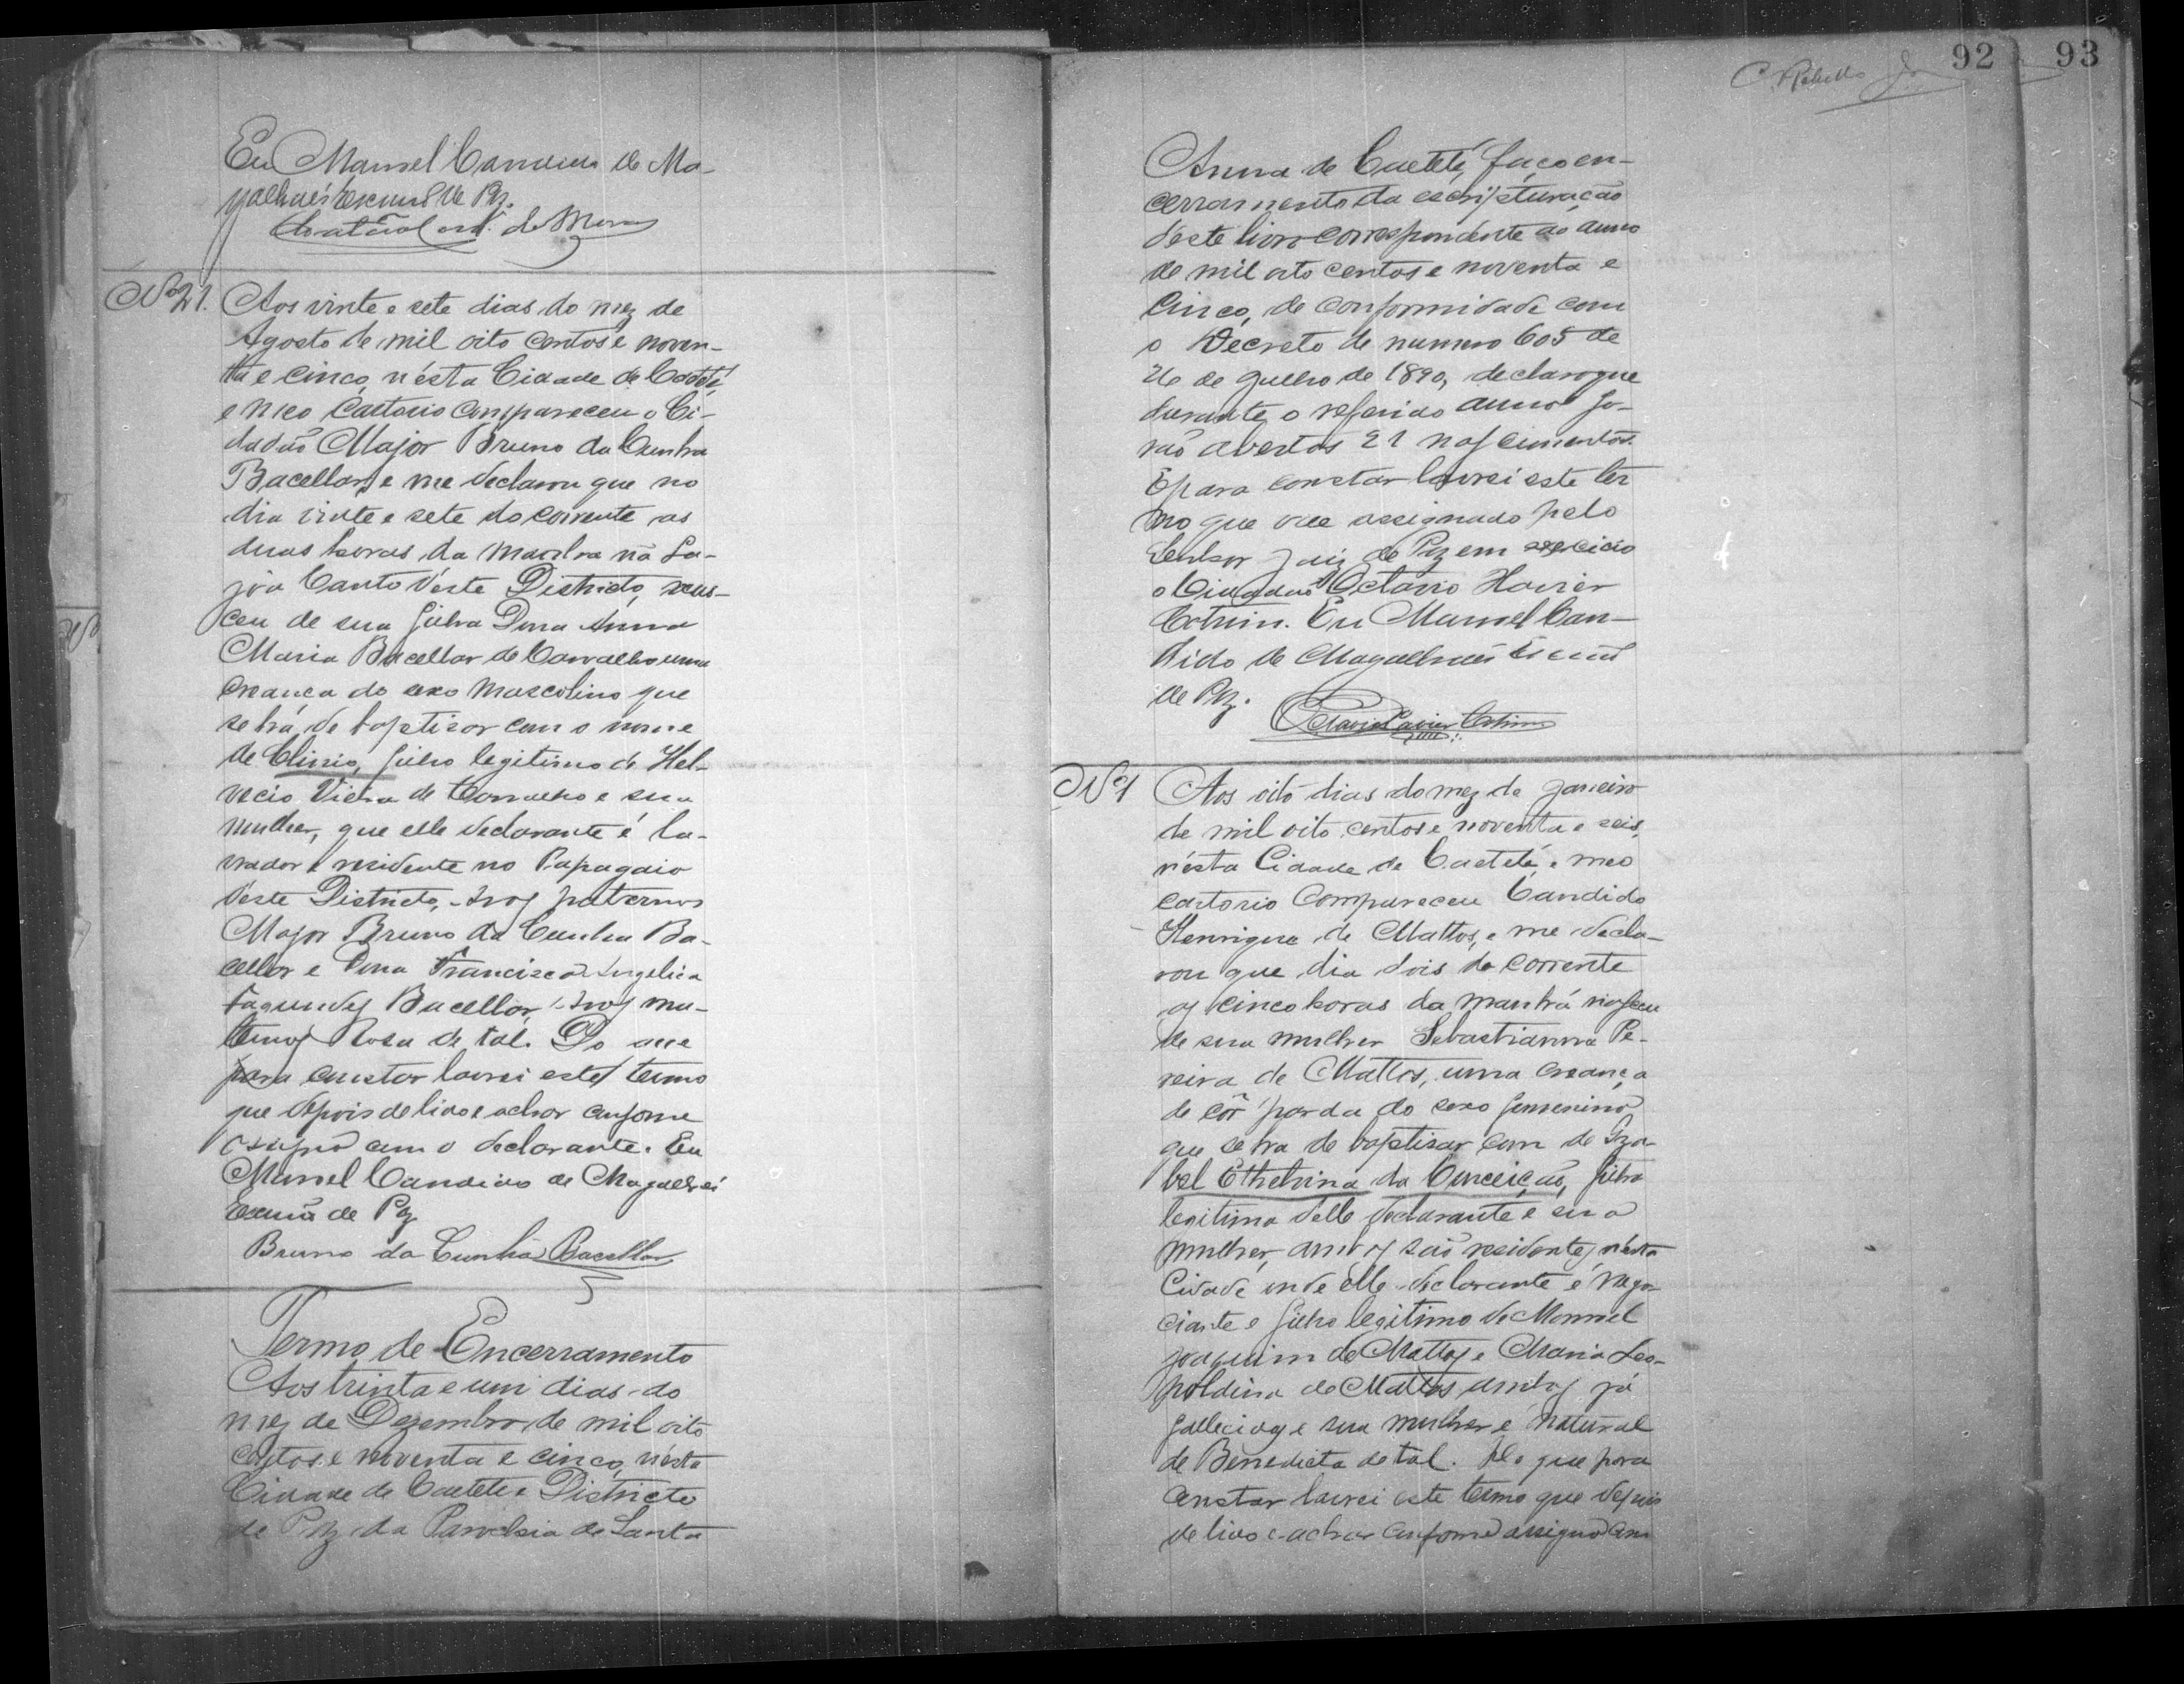 Eu Manoel Candido de Ma-
galhães Escrivão de Paz.
de Moraes
Nº 21. Aos vinte e sete dias do mez de
Agosto de mil oito centos e noven-
ta e cinco, n'ésta Cidade de Caeteté
e meo Cartorio compareceu o Ci-
dadão Major Bruno da Cunha
Bacellar, e me declarou que no
dia vinte e sete do corrente as
duas horas da manhra na La-
gôa Canto d'este Districto, nas-
ceu de sua filha Dona Anna
Maria Bacellar de Carvalho uma
creança do sexo masculino que
se há de baptisar com o nome
de Clinio, filho legitimo de Hel-
vecio Vieira de Carvalho e sua
mulher, que elle declarante é la-
vrador e residente no Papagaio
d'este Districto, Avos paternos
Major Bruno da Cunha Ba-
cellar e Dona Francisca Angelica
Fagundes Bacellar, Avos ma-
ternos Rosa de tal. Do que
para constar lavrei este termo
que depois de lido e achar conforme
assigno com o declarante. Eu
Manoel Candido de Magalhães
Escrivão de Paz
Bruno da Cunha Bacellar
Termo de Encerramento
Aos trinta e um dias do
mez de Dezembro de mil oito
centos e noventa e cinco, n'ésta
Cidade de Caeteté e Districto
de Paz da Parochia de Santa
92 93
C. Rebello
Anna de Caeteté, faço en-
cerramento da escripturação
d'este livro correspondente ao anno
de mil oito centos e noventa e
Cinco, de conformidade com
o Decreto de numero 605 de
26 de Julho de 1890, declaro que
durante o referido anno fo-
rão abertos 21 nascimentos.
E para constar lavrei este ter
mo que vae assignado pelo
Senhor Juiz de Paz em exercicio
o Cidadão Octavio Xavier
Cotrim. Eu Manoel Can-
dido de Magalhães Escrivão
de Paz.
Octavio Xavier Cotrim
Nº 1 Aos oito dias do mez de Janeiro
de mil oito centos e noventa e seis,
n'ésta Cidade de Caeteté, e meo
cartorio compareceu Candido
Henrique de Mattos, e me decla-
rou que dia dois do corrente
as cinco horas da manhrá nasceu
de sua mulher Sebastianna Pe-
reira de Mattos, uma creança
de côr parda do sexo femenino
que se ha de baptisar com de Iza-
bel Ethelvina da Conceição, filha
legitima delle declarante e sua
mulher, ambos são residentes n'esta
Cidade onde elle declarante é nego-
ciante e filho legitimo de Manoel
Joaquim de Mattos e Maria Leo-
poldina de Mattos ambos já
fallecidos e sua mulher é natural
de Benedicta de tal. Do que para
constar lavrei este termo que depois
de lido e achar conforme assigno com